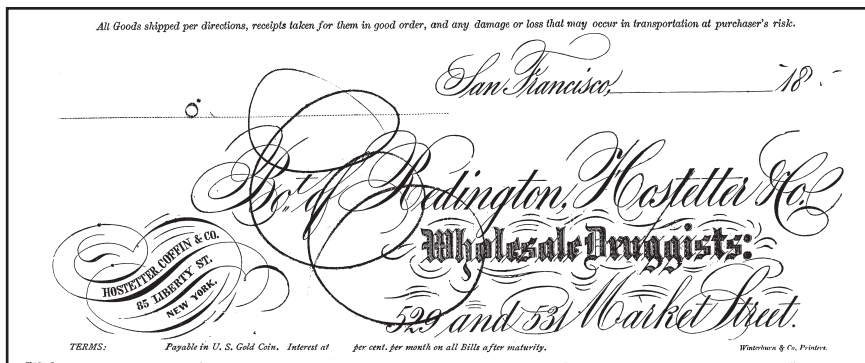 All Goods shipped per directions, receipts taken for them in good order, and any damage or loss that may occur in transportation at purchaser's risk.
San Francisco, 18
Bo't of Redington, Hostetter & Co.
Wholesale Druggists:
HOSTETTER COFFIN & CO.
85 LIBERTY ST.
NEW YORK.
529 and 531 Market Street.
TERMS: Payable in U. S. Gold Coin. Interest at per cent. per month on all Bills after maturity.
Winterburn & Co. Printers.